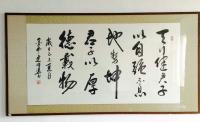 天行健君子
以自强不息
地势坤
君子以厚
德载物